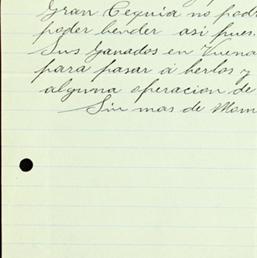 Gran Cequia no podr
poder bender asi pues
Sus Ganados en Buena
para pasar á berlos y
alguna operacion de
Sin mas de Mom